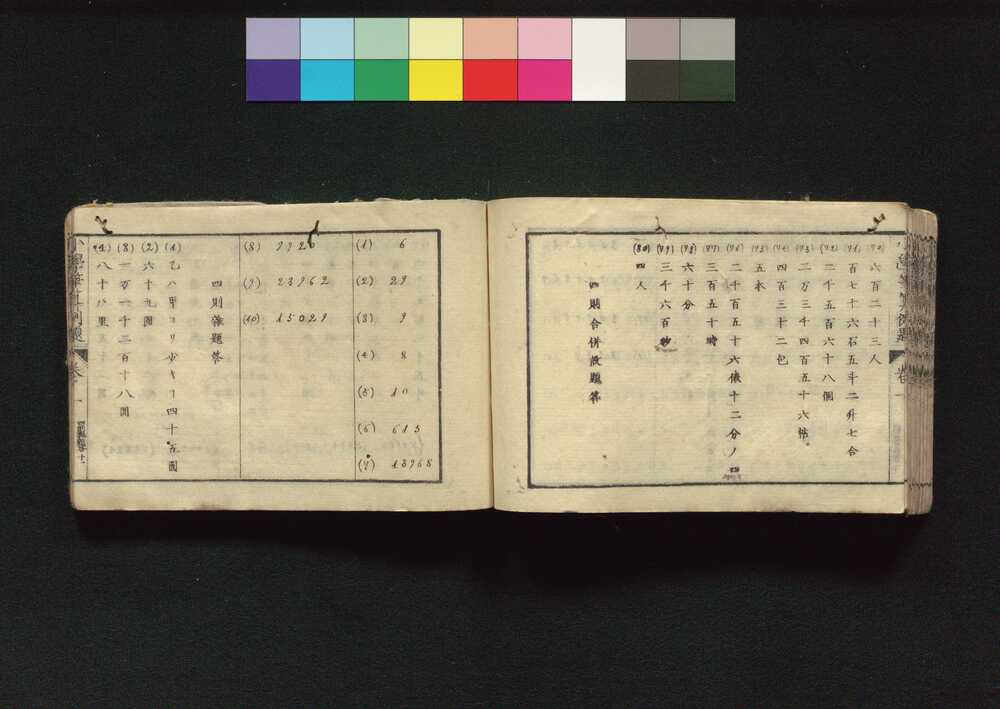 (70) 六百二十三人
(71) 百七十六石五斗二升七合
(72) 二千五百六十八個
(73) 二万三千四百五十六帖
(74) 四百三十二包
(75) 五衣
(76) 二千百五十六俵十二分ノ四
(77) 三百五十時
(78) 六十分
(79) 三千六百秒
(80) 四人
四則合併設題答
(1) 6
(2) 29
(3) 9
(4) 8
(5) 10
(6) 615
(7) 13968
(8) 9926
(9) 23962
(10) 15029
四則雜題答
(1) 乙ハ甲ヨリ少キヿ四十五圓
(2) 六十九圓
(3) 一万一千二百十八圓
(4) 八十八里